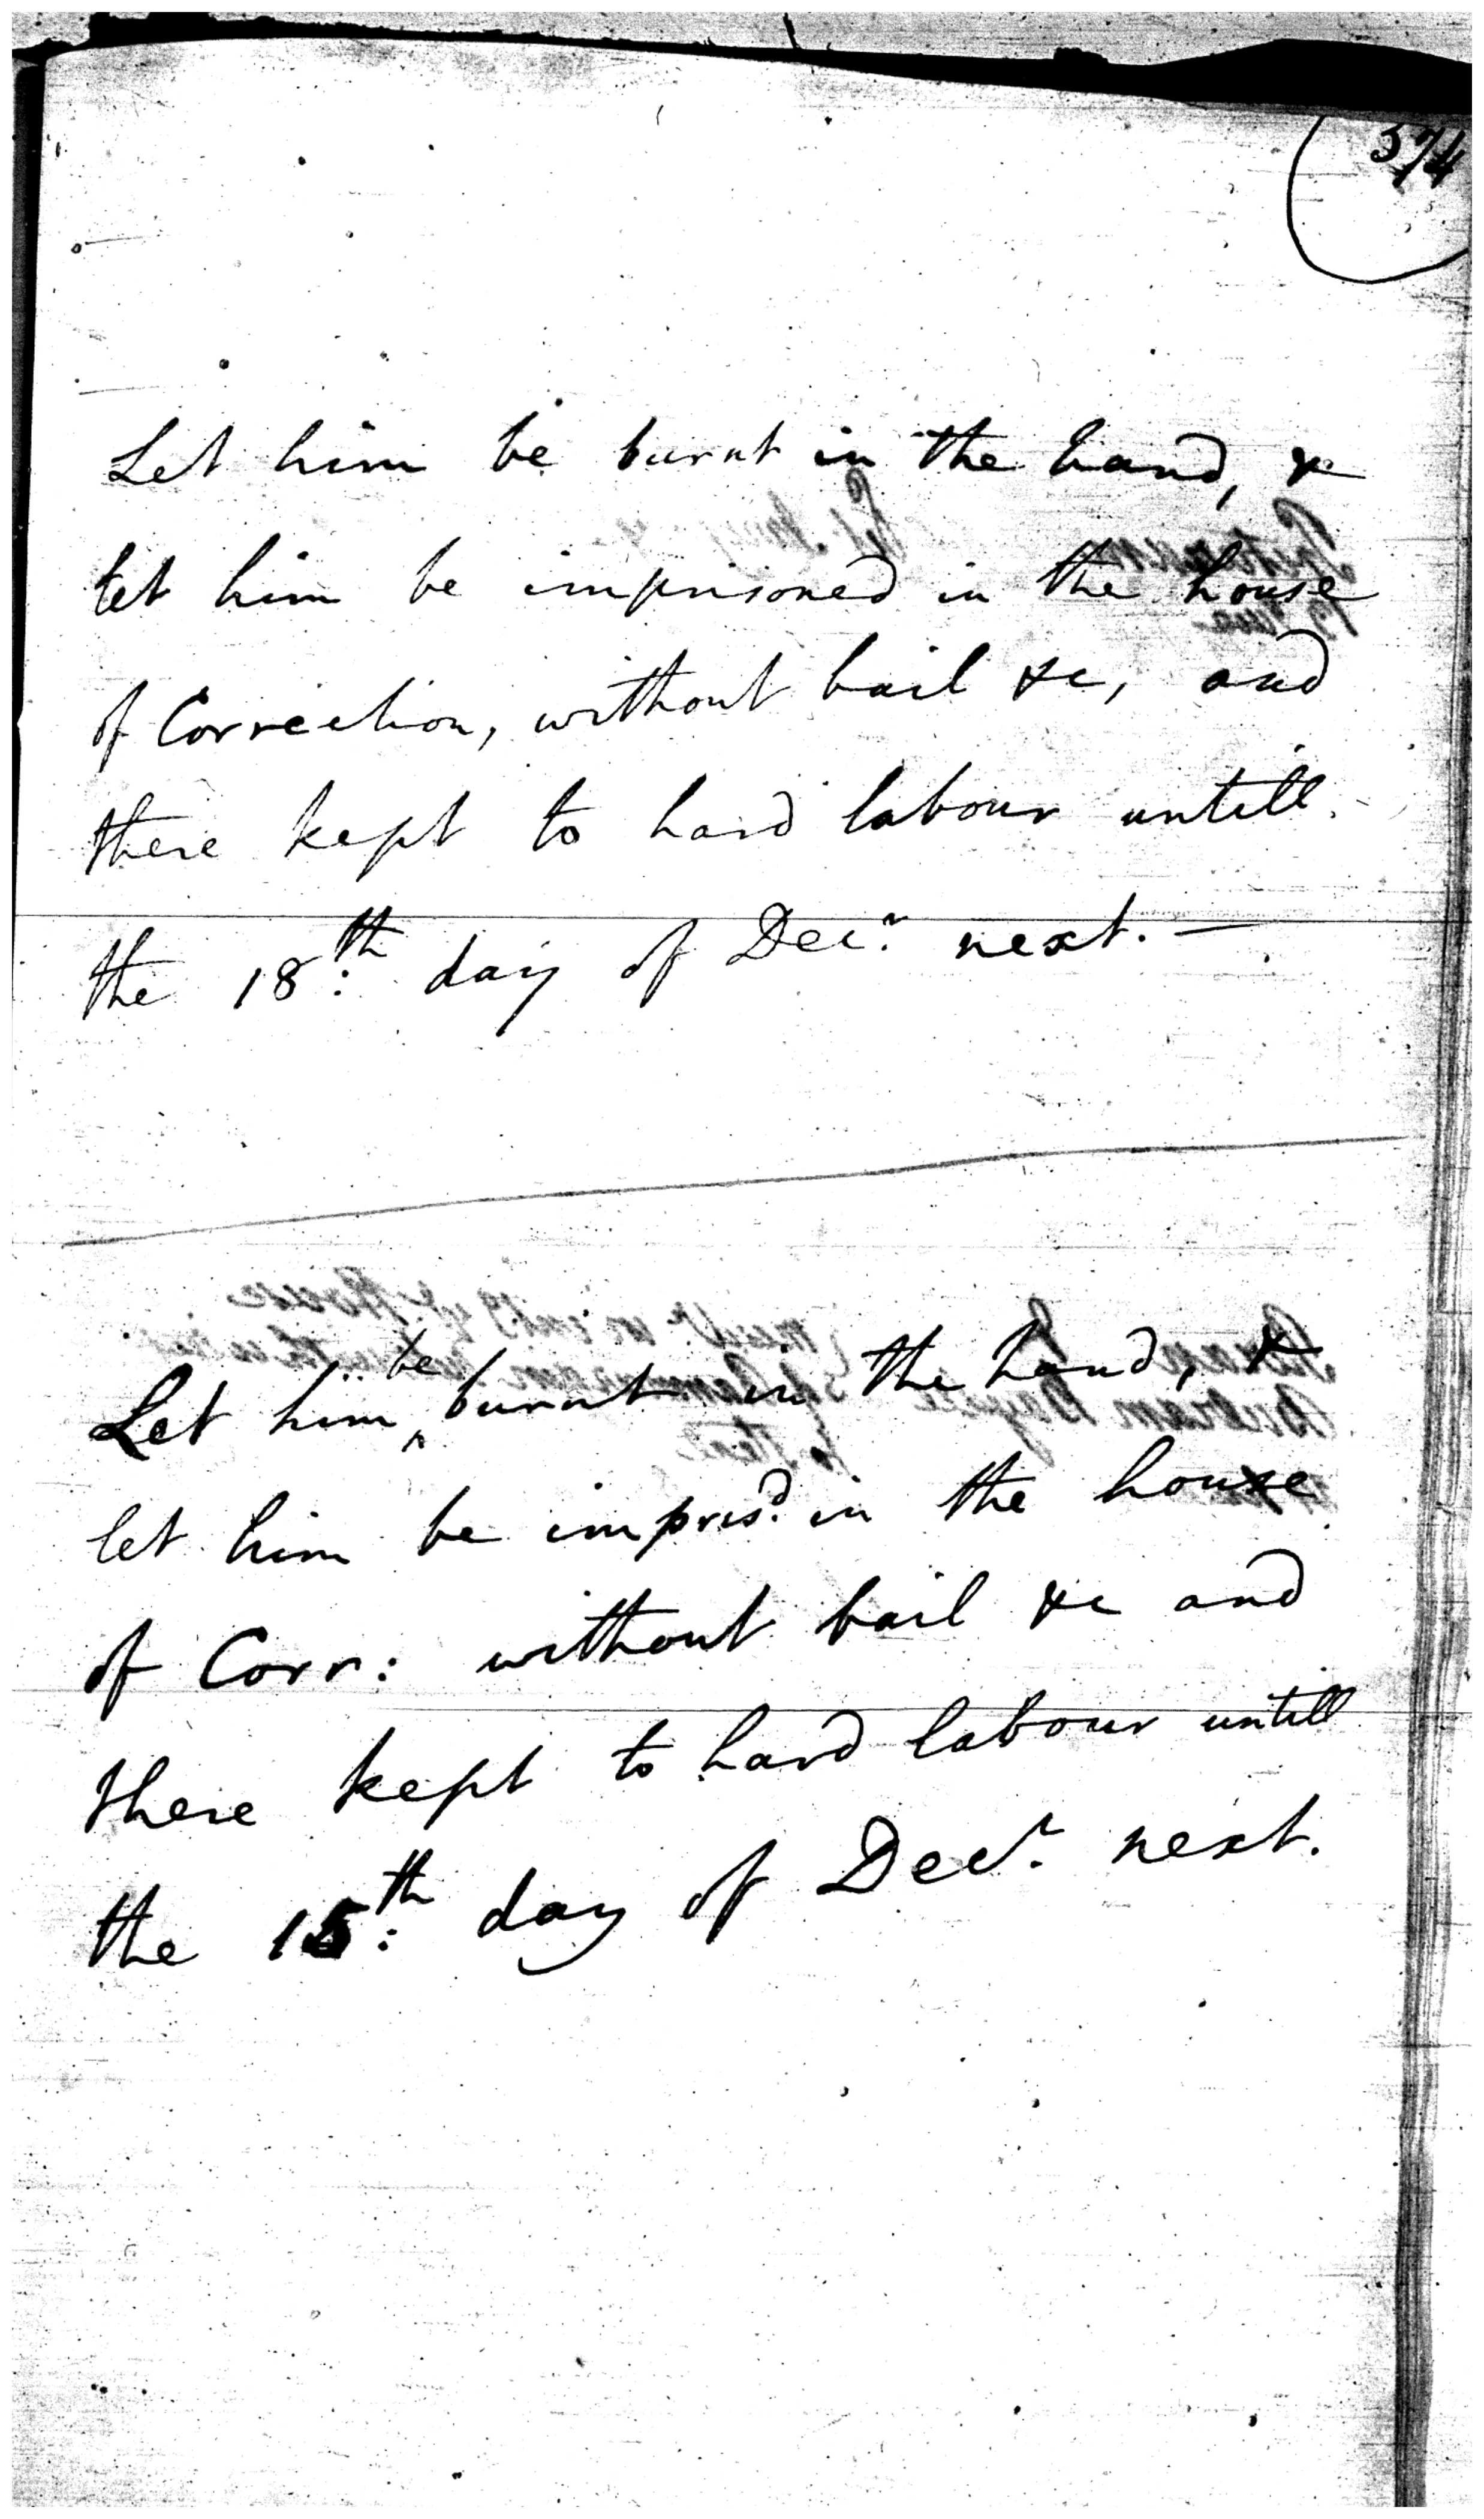 574
Let him be burnt in the hand, &
let him be imprisoned in the house
of Correction, without bail &c, and
there kept to hard labour untill
the 18:th day of Decr. next. —
Let him be burnt in the hand, &
let him be imprisd. in the house
of Corr: without bail &c and
there kept to hard labour untill
the 15:th day of Decr. next.